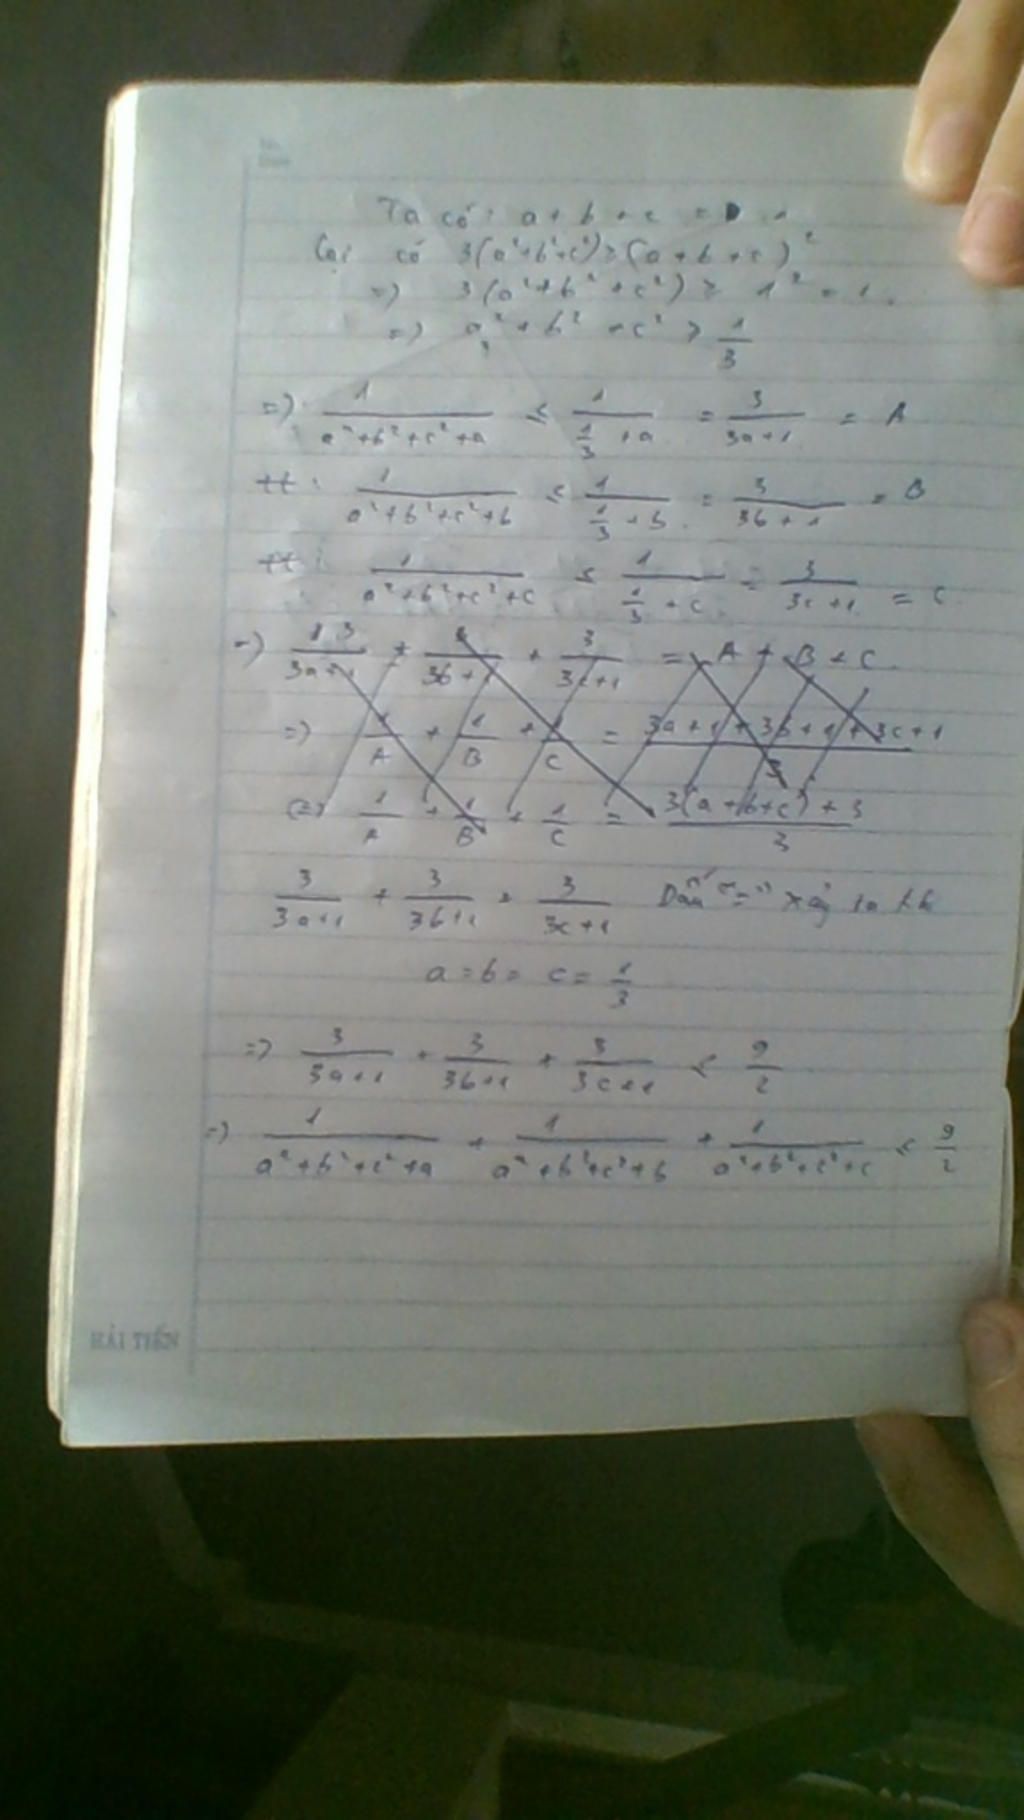 Ta có: a + b + c = 1
Lại có 3(a²+b²+c²) ≥ (a+b+c)²
=> 3(a²+b²+c²) ≥ 1² = 1.
=> a²+b²+c² ≥ 1/3
=> 1/(a²+b²+c²+a) ≤ 1/(1/3 + a) = 3/(3a+1) = A
tt: 1/(a²+b²+c²+b) ≤ 1/(1/3 + b) = 3/(3b+1) = B
tt: 1/(a²+b²+c²+c) ≤ 1/(1/3 + c) = 3/(3c+1) = C
=> 3/(3a+1) + 3/(3b+1) + 3/(3c+1) = A + B + C
=> 1/A + 1/B + 1/C = (3a+1+3b+1+3c+1)/3
(=) 1/A + 1/B + 1/C = (3(a+b+c)+3)/3
3/(3a+1) + 3/(3b+1) + 3/(3c+1) Dấu "=" xảy ra khi
a = b = c = 1/3
=> 3/(3a+1) + 3/(3b+1) + 3/(3c+1) ≤ 9/2
=> 1/(a²+b²+c²+a) + 1/(a²+b²+c²+b) + 1/(a²+b²+c²+c) ≤ 9/2
HẢI TIẾN